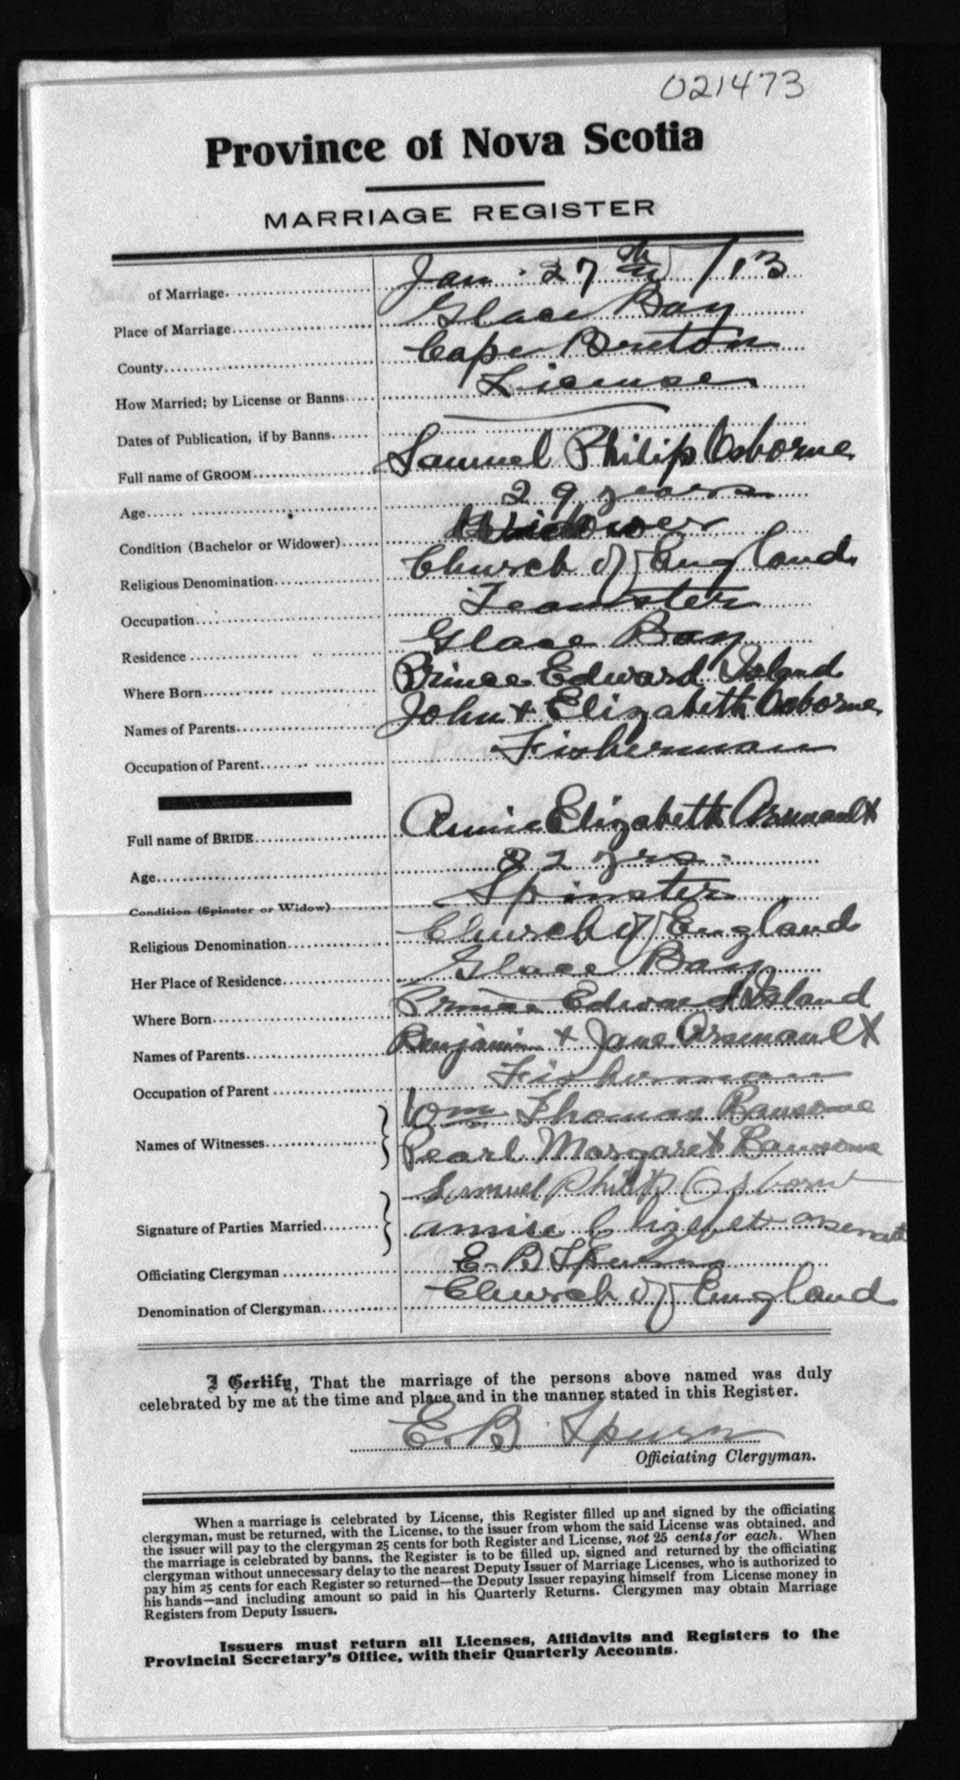 021473
Province of Nova Scotia
MARRIAGE REGISTER
Date of Marriage Jan. 27th /13
Place of Marriage Glace Bay
County Cape Breton
How Married; by License or Banns License
Dates of Publication, if by Banns
Full name of GROOM Samuel Philip Osborne
Age 29 years
Condition (Bachelor or Widower) Widower
Religious Denomination Church of England
Occupation Teamster
Residence Glace Bay
Where Born Prince Edward Island
Names of Parents John & Elizabeth Osborne
Occupation of Parent Fisherman
Full name of BRIDE Annie Elizabeth Arsenault
Age 22 yrs.
Condition (Spinster or Widow) Spinster
Religious Denomination Church of England
Her Place of Residence Glace Bay
Where Born Prince Edward Island
Names of Parents Benjamin & Jane Arsenault
Occupation of Parent Fisherman
Wm Thomas
Names of Witnesses
Pearl Margaret
Samuel Philip Osborne
Signature of Parties Married
Annie Elizebet
Officiating Clergyman E. B. Spurr
Denomination of Clergyman Church of England
I Certify, That the marriage of the persons above named was duly
celebrated by me at the time and place and in the manner stated in this Register.
E. B. Spurr
Officiating Clergyman.
When a marriage is celebrated by License, this Register filled up and signed by the officiating
clergyman, must be returned, with the License, to the issuer from whom the said License was obtained, and
the issuer will pay to the clergyman 25 cents for both Register and License, not 25 cents for each. When
the marriage is celebrated by banns, the Register is to be filled up, signed and returned by the officiating
clergyman without unnecessary delay to the nearest Deputy Issuer of Marriage Licenses, who is authorized to
pay him 25 cents for each Register so returned—the Deputy Issuer repaying himself from License money in
his hands—and including amount so paid in his Quarterly Returns. Clergymen may obtain Marriage
Registers from Deputy Issuers.
Issuers must return all Licenses, Affidavits and Registers to the
Provincial Secretary's Office, with their Quarterly Accounts.